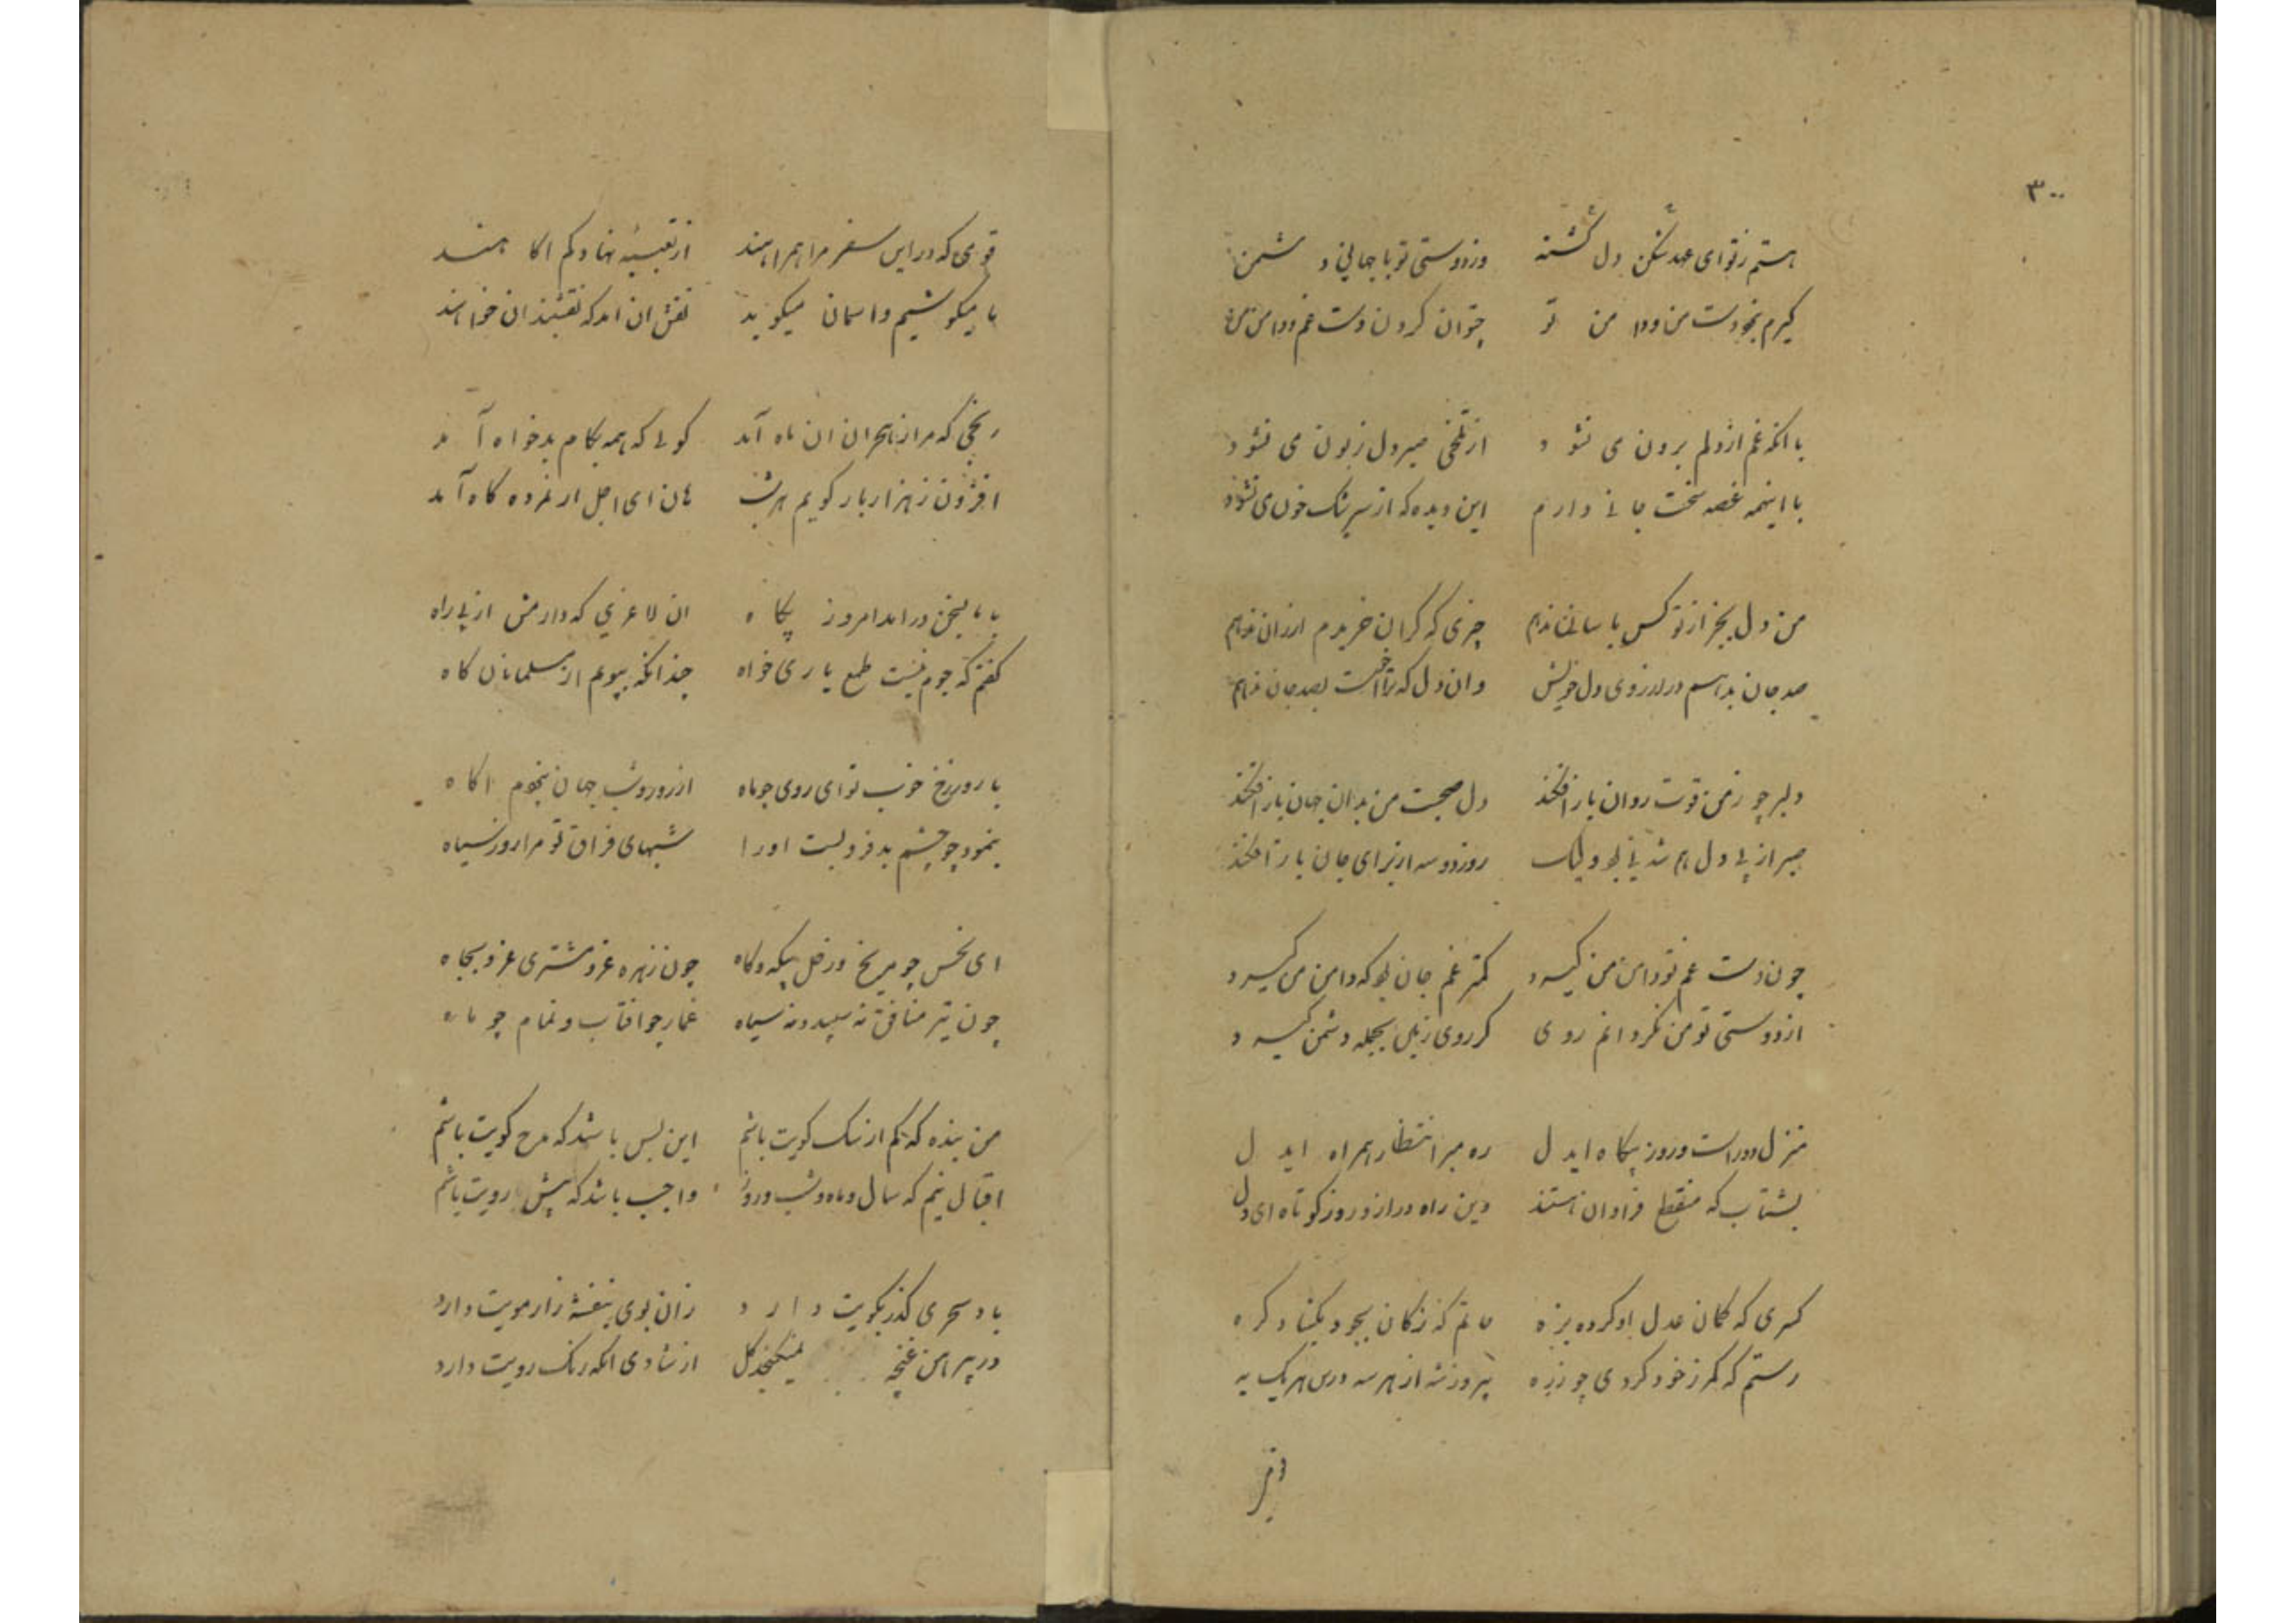 ۳۰۰
هستم ز تو ای عهد شکن دل گشته وز دوستی تو با جهانی دشمن
گیرم نبود دست من و دامن تو چتوان کردن دست غم و دامن من
با انکه غم از دلم برون می نشود از تلخی صبر دل زبون می نشود
با اینهمه غصه سخت جانی دارم این دیده که از سرشک خون می نشود
من دل بجز از تو کس باسانی ندهم چیزی که گران خریدم ارزان ندهم
صد جان بدهم در ارزوی دل خویش وان دل که ترا خواست بصد جان ندهم
دلبر چو ز من قوت روان باز افکند دل صحبت من بدان جهان باز افکند
صبر از پی دل هم شد نی بود ولیک روز دو سه از برای جان باز افکند
چون دست غم تو دامن من گیرد کمتر غم جان بود که دامن من گیرد
از دوستی تو من نگردانم روی گر روی زمین بجمله دشمن گیرد
منزل دور است و روز بیگاه ایدل ره میر انتظار همراه ایدل
بشتاب که منقطع فراوان هستند دین راه دراز و روز کوتاه ای دل
کسری که کمان عدل او کرده بزه حاتم که ز کان بجود بگشاد گره
رستم که کمر ز خود کردی چو زره پیروز شه از هر سه درین هر یک به
قومی که در این سفر مرا همراهند از تعبیه نهاد کم اکاهند
ما میکوشیم و اسمان میکوید نقش ان امد که نقشبندان خواهند
رنجی که مرا ز هجران ان ماه آمد کوئی که همه بکام بدخواه آمد
افزون ز هزار بار کویم هر شب هان ای اجل ار نمرده گاه آمد
با ما بسخن در امد امروز پگاه ان لاغری که دارمش از پی راه
کفتم که جوم نیست طمع باری خواه چندانکه ببویم از مسلمانان کاه
با روز رخ خوب تو ای روی چو ماه از روز و شب جهان نبودم اکاه
بنمود چو چشم بد فرو بست او را شبهای فراق تو مرا روز سیاه
ای نحس چو مریخ و زحل بیگه و گاه چون زهره غر و مشتری غر و بجاه
چون تیر منافق نه سپید و نه سیاه غماز چو افتاب و نمام چو ماه
من بنده که کم از سک کویت باشم این بس باشد که مدح کویت باشم
اقبال نیم که سال و ماه و شب و روز واجب باشد که پیش رویت باشم
باد سحری گذر بکویت دارد زان بوی بنفشه زار مویت دارد
در پیراهن غنچه نمیکنجد کل از شادی انکه رنک رویت دارد